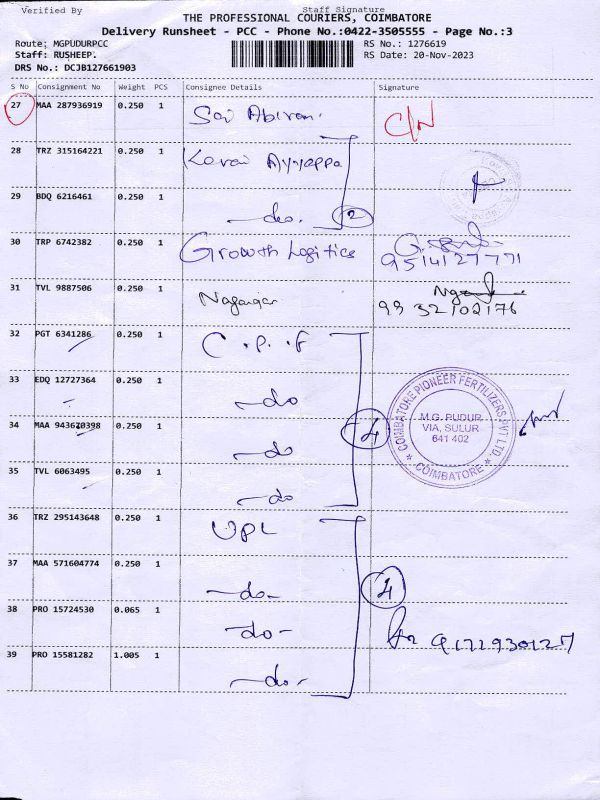 Verified By Staff Signature
THE PROFESSIONAL COURIERS, COIMBATORE
Delivery Runsheet - PCC - Phone No.:0422-3505555 - Page No.:3
Route: MGPUDURPCC RS No.: 1276619
Staff: RUSHEEP. RS Date: 20-Nov-2023
DRS No.: DCJB127661903
S No Consignment No Weight PCS Consignee Details Signature
27 MAA 287936919 0.250 1 Sai Abiram. C/N
28 TRZ 315164221 0.250 1 Karai Ayyappa
29 BDQ 6216461 0.250 1 -do. 2
30 TRP 6742382 0.250 1 Growth Logitics
9514127771
31 TVL 9887506 0.250 1 Nagaraj
99 32102176
32 PGT 6341286 0.250 1 C.P.F
33 EDQ 12727364 0.250 1 -do
34 MAA 943670398 0.250 1 -do 4
COIMBATORE PIONEER FERTILIZERS PVT LTD.
M.G. PUDUR
VIA, SULUR
641 402
* COIMBATORE *
35 TVL 6063495 0.250 1 -do
36 TRZ 295143648 0.250 1 UPL
37 MAA 571604774 0.250 1 -do- 4
38 PRO 15724530 0.065 1 -do-
39 PRO 15581282 1.005 1 -do-